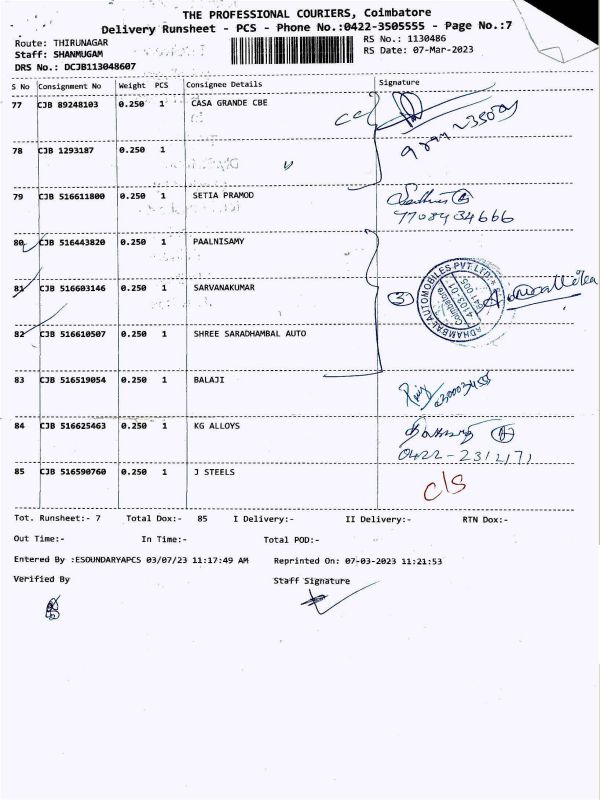 THE PROFESSIONAL COURIERS, Coimbatore
Delivery Runsheet - PCS - Phone No.:0422-3505555 - Page No.:7
Route: THIRUNAGAR
RS No.: 1130486
Staff: SHANMUGAM
RS Date: 07-Mar-2023
DRS No.: DCJB113048607
S No Consignment No Weight PCS Consignee Details Signature
77 CJB 89248103 0.250 1 CASA GRANDE CBE
78 CJB 1293187 0.250 1
79 CJB 516611800 0.250 1 SETIA PRAMOD
7708434666
80 CJB 516443820 0.250 1 PAALNISAMY
81 CJB 516603146 0.250 1 SARVANAKUMAR
3
ADHAMBAL AUTOMOBILES PVT.LTD
Coimbatore
641 005
82 CJB 516610507 0.250 1 SHREE SARADHAMBAL AUTO
83 CJB 516519054 0.250 1 BALAJI
84 CJB 516625463 0.250 1 KG ALLOYS
0422-2312171
85 CJB 516590760 0.250 1 J STEELS
c/s
Tot. Runsheet:- 7 Total Dox:- 85 I Delivery:- II Delivery:- RTN Dox:-
Out Time:- In Time:- Total POD:-
Entered By :ESOUNDARYAPCS 03/07/23 11:17:49 AM Reprinted On: 07-03-2023 11:21:53
Verified By Staff Signature